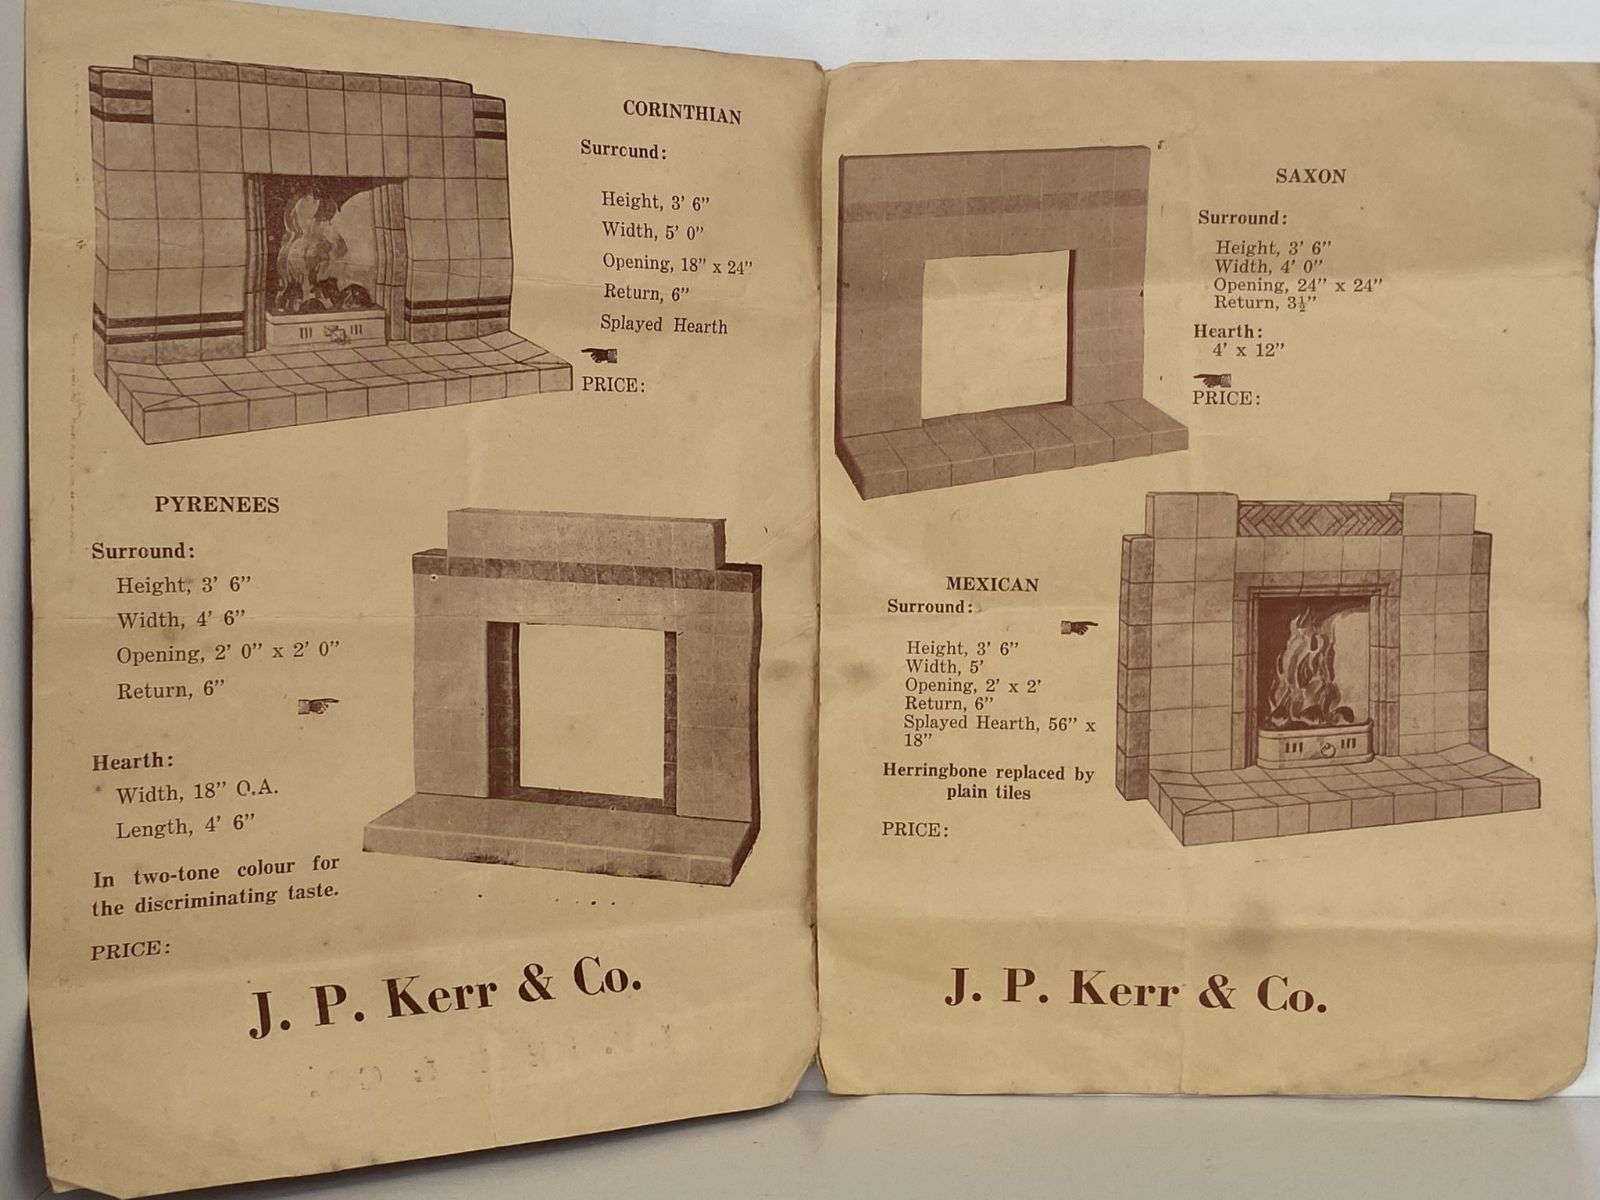 CORINTHIAN
Surround:
Height, 3' 6"
Width, 5' 0"
Opening, 18" x 24"
Return, 6"
Splayed Hearth
PRICE:
PYRENEES
Surround:
Height, 3' 6"
Width, 4' 6"
Opening, 2' 0" x 2' 0"
Return, 6"
Hearth:
Width, 18" O.A.
Length, 4' 6"
In two-tone colour for
the discriminating taste.
PRICE:
J. P. Kerr & Co.
SAXON
Surround:
Height, 3' 6"
Width, 4' 0"
Opening, 24" x 24"
Return, 3½"
Hearth:
4' x 12"
PRICE:
MEXICAN
Surround:
Height, 3' 6"
Width, 5'
Opening, 2' x 2'
Return, 6"
Splayed Hearth, 56" x
18"
Herringbone replaced by
plain tiles
PRICE:
J. P. Kerr & Co.